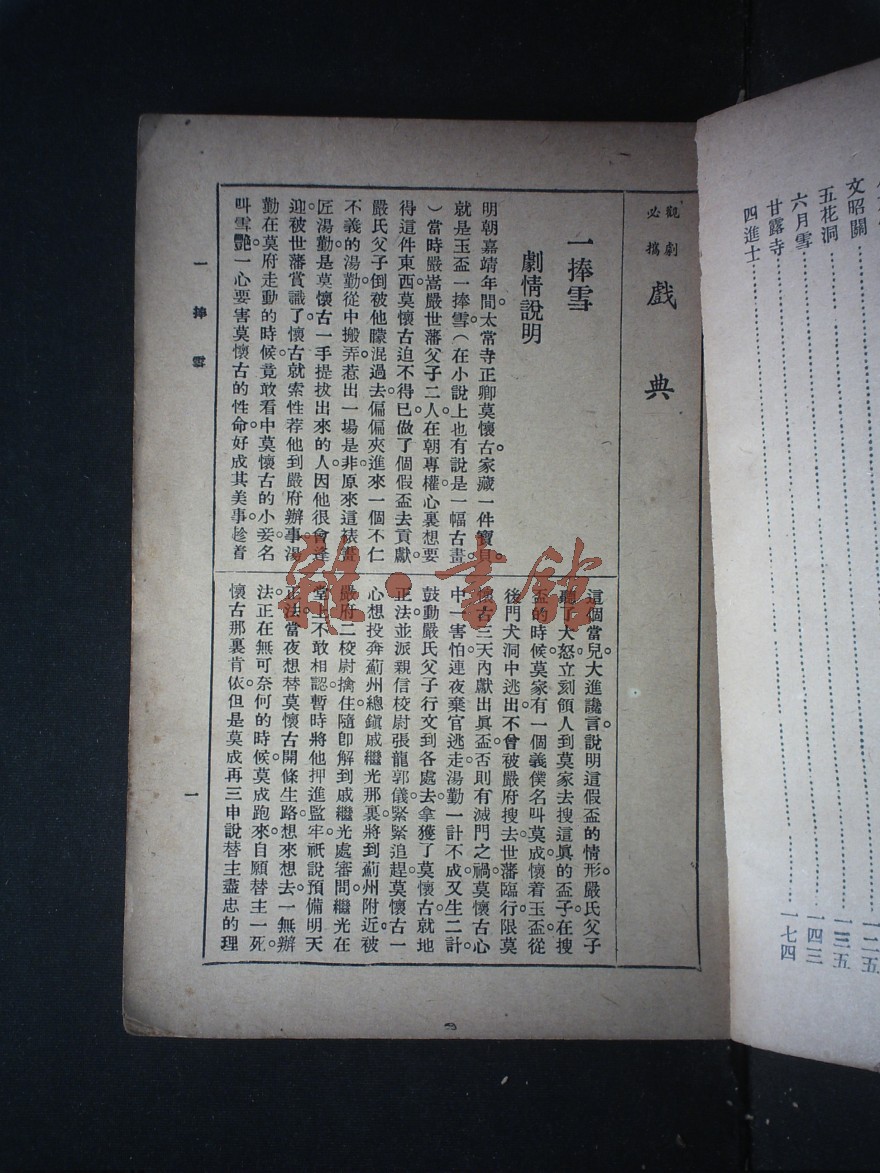 文昭關 一二五
五花洞 一三五
六月雪 一四三
甘露寺
四進士 一七四
觀劇必攜
戲典
一捧雪
劇情說明
明朝嘉靖年間。太常寺正卿莫懷古。家藏一件寶貝。
就是玉盃一捧雪(在小說上也有說是一幅古畫
)當時嚴嵩嚴世藩父子二人。在朝專權。心裏想要
得這件東西。莫懷古迫不得已。做了個假盃去貢獻。
嚴氏父子。倒被他朦混過去。偏偏夾進來一個不仁
不義的湯勤。從中搬弄。惹出一場是非。原來這裱畫
匠湯勤。是莫懷古一手提拔出來的人。因他很會逢
迎。被世藩賞識了。懷古就索性荐他到嚴府辦事。湯
勤在莫府走動的時候。竟敢看中莫懷古的小妾。名
叫雪艷。一心要害莫懷古的性命。好成其美事。趁着
這個當兒。大進讒言。說明這假盃的情形。嚴氏父子
聽了大怒。立刻領人到莫家去搜這眞的盃子。在搜
盃的時候。莫家有一個義僕。名叫莫成。懷着玉盃。從
後門犬洞中逃出。不曾被嚴府搜去。世藩臨行。限莫
懷古三天內獻出眞盃。否則有滅門之禍。莫懷古心
中一害怕。連夜棄官逃走。湯勤一計不成又生二計。
鼓動嚴氏父子。行文到各處去。拿獲了莫懷古。就地
正法。並派親信校尉張龍郭儀。緊緊追趕。莫懷古一
心想投奔薊州總鎭戚繼光那裏。將到薊州附近。被
嚴府二校尉擒住。隨卽解到戚繼光處審問。繼光在
堂上不敢相認。暫時將他押進監牢。祇說預備明天
正法。當夜想替莫懷古開條生路。想來想去。一無辦
法。正在無可奈何的時候。莫成跑來。自願替主一死。
懷古那裏肯依。但是莫成再三申說替主盡忠的理
一捧雪
一
雜·書館